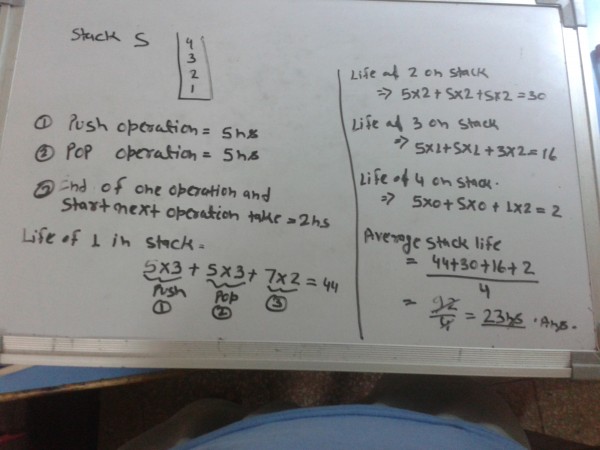 Stack S
4
3
2
1
① Push operation = 5ns
② POP operation = 5ns
③ End of one operation and
start next operation take = 2ns
Life of 1 in stack =
5x3 + 5x3 + 7x2 = 44
Push Pop ③
① ②
Life of 2 on stack
⇒ 5x2 + 5x2 + 5x2 = 30
Life of 3 on stack
⇒ 5x1 + 5x1 + 3x2 = 16
Life of 4 on stack.
⇒ 5x0 + 5x0 + 1x2 = 2
Average stack life
= 44+30+16+2
4
= 92/4 = 23ns . Ans.